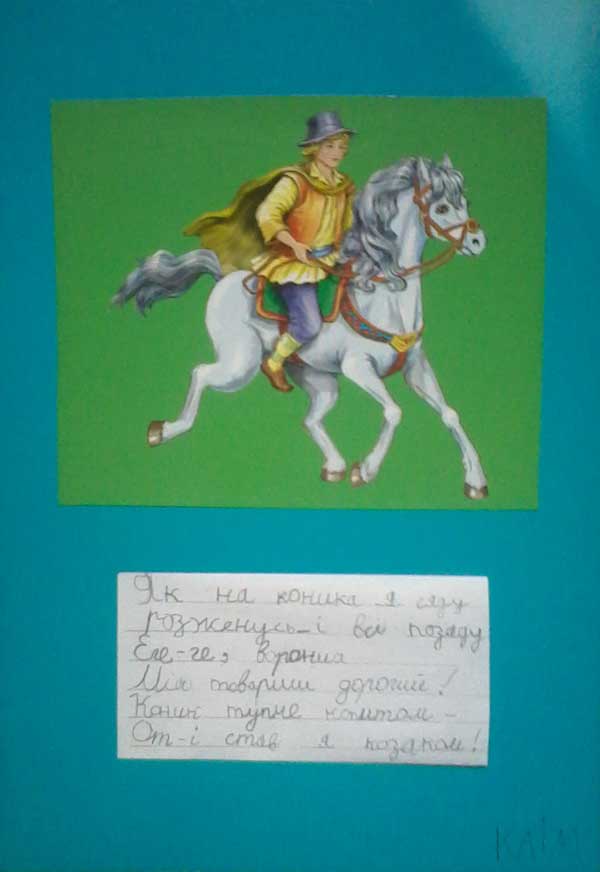 Як на коника я сяду
Розженусь-і всі позаду
Еге-ге, ворония
Мій товариш дорогий!
Коник тупне копитом-
От-і став я козаком!
КЛІМ